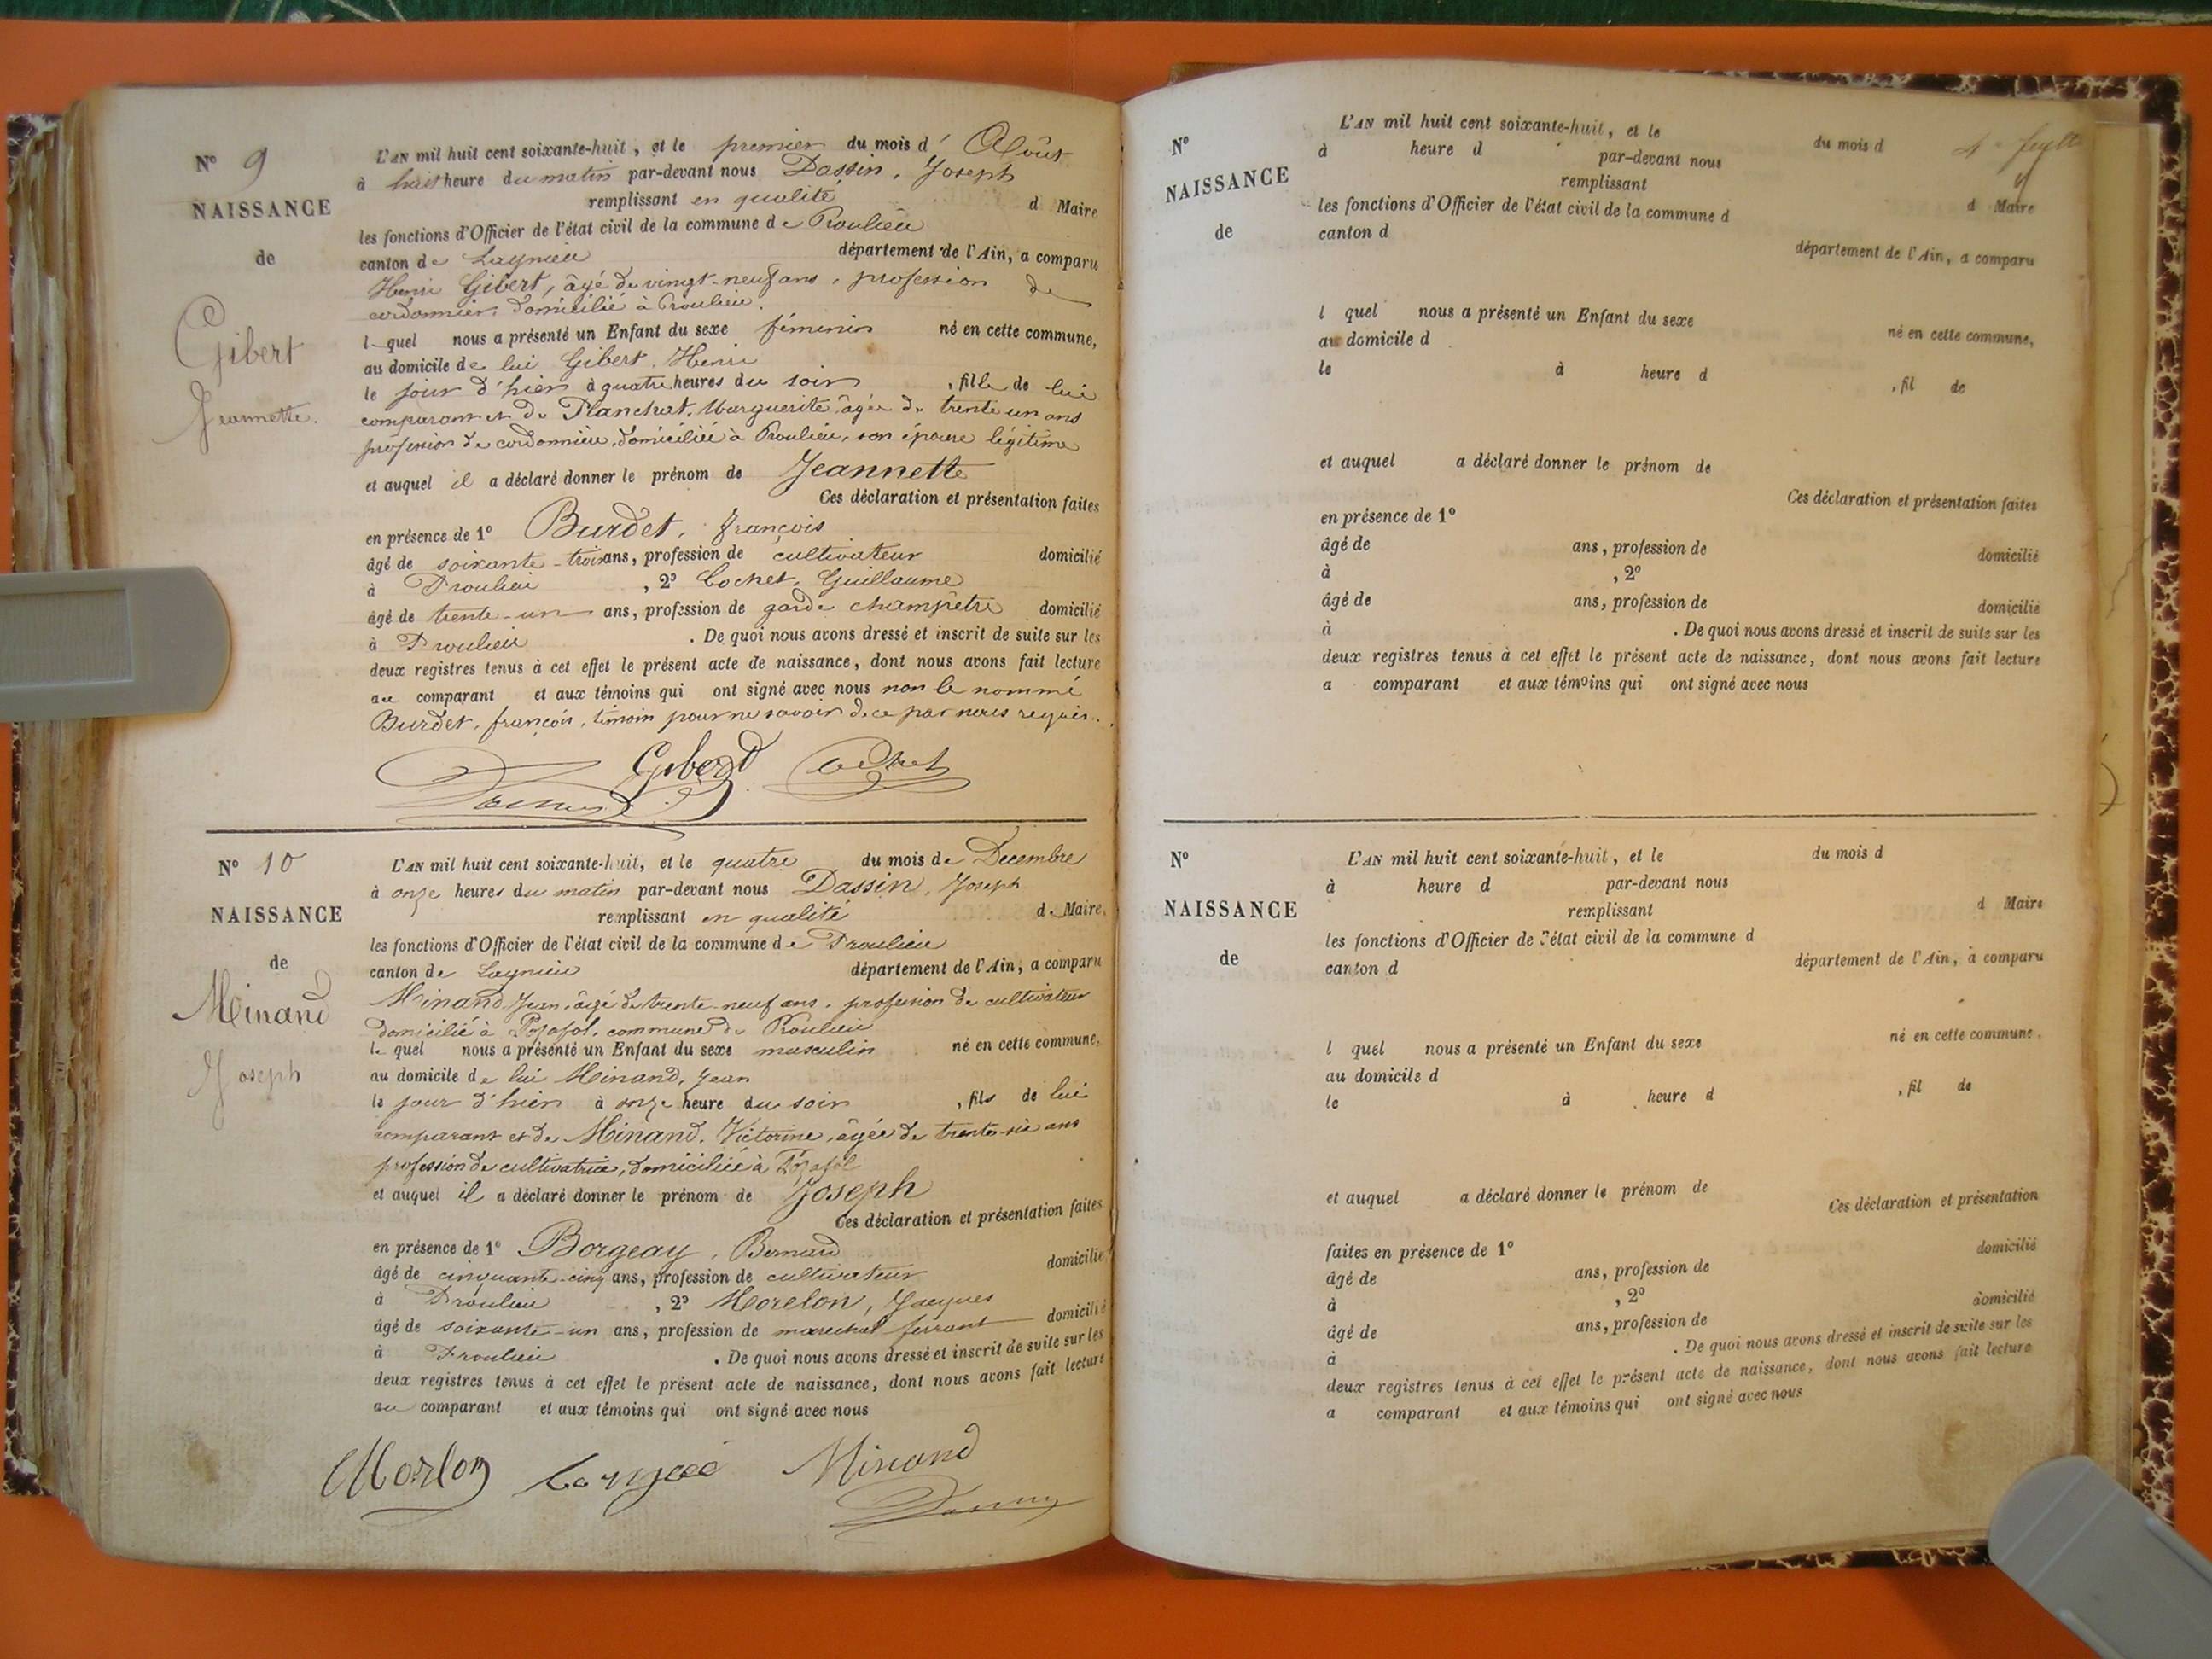 N° 9
NAISSANCE
de
Gibert
Jeannette.
L'AN mil huit cent soixante-huit, et le premier du mois d' Août
à huit heure du matin par-devant nous Dassin, Joseph
remplissant en qualité d Maire
les fonctions d'Officier de l'état civil de la commune de Proulieu
canton de Lagnieu département de l'Ain, a comparu
Henri Gibert, âgé de vingt-neuf ans, profession de
cordonnier, domicilié à Proulieu.
l quel nous a présenté un Enfant du sexe féminin né en cette commune,
au domicile de lui Gibert, Henri
le jour d'hier à quatre heures du soir, fille de lui
comparant et de Planchet, Marguerite, âgée de trente un ans
profession de cordonnière, domiciliée à Proulieu, son épouse légitime
et auquel il a déclaré donner le prénom de Jeannette
Ces déclaration et présentation faites
en présence de 1° Burdet, françois
âgé de soixante-trois ans, profession de cultivateur domicilié
à Proulieu, 2° Cochet, Guillaume
âgé de trente-un ans, profession de garde champêtre domicilié
à Proulieu. De quoi nous avons dressé et inscrit de suite sur les
deux registres tenus à cet effet le présent acte de naissance, dont nous avons fait lecture
au comparant et aux témoins qui ont signé avec nous non le nommé
Burdet, françois, témoin pour ne savoir de ce par nous requis.
Giberd Cochet
N° 10
NAISSANCE
de
Minand
Joseph
L'AN mil huit cent soixante-huit, et le quatre du mois de Decembre
à onze heures du matin par-devant nous Dassin, Joseph
remplissant en qualité de Maire
les fonctions d'Officier de l'état civil de la commune de Proulieu
canton de Lagnieu département de l'Ain, a comparu
Minand, Jean, âgé de trente-neuf ans, profession de cultivateur
domicilié à Pozafol, commune de Proulieu
le quel nous a présenté un Enfant du sexe masculin né en cette commune,
au domicile de lui Minand, Jean
le jour d'hier à onze heure du soir, fils de lui
comparant et de Minand, Victorine, âgée de trente-six ans
profession de cultivatrice, domiciliée à Pozafol
et auquel il a déclaré donner le prénom de Joseph
Ces déclaration et présentation faites
en présence de 1° Borgeay, Bernard
âgé de cinquante-cinq ans, profession de cultivateur domicilié
à Proulieu, 2° Morelon, Jacques
âgé de soixante-un ans, profession de marechal ferrant domicilié
à Proulieu. De quoi nous avons dressé et inscrit de suite sur les
deux registres tenus à cet effet le présent acte de naissance, dont nous avons fait lecture
au comparant et aux témoins qui ont signé avec nous
Morlon Minand
N°
NAISSANCE
de
L'AN mil huit cent soixante-huit, et le du mois d
à heure d par-devant nous
remplissant d Maire
les fonctions d'Officier de l'état civil de la commune d
canton d département de l'Ain, a comparu
l quel nous a présenté un Enfant du sexe né en cette commune,
au domicile d
le à heure d, fil de
et auquel a déclaré donner le prénom de
Ces déclaration et présentation faites
en présence de 1°
âgé de ans, profession de domicilié
à, 2°
âgé de ans, profession de domicilié
à. De quoi nous avons dressé et inscrit de suite sur les
deux registres tenus à cet effet le présent acte de naissance, dont nous avons fait lecture
a comparant et aux témoins qui ont signé avec nous
N°
NAISSANCE
de
L'AN mil huit cent soixante-huit, et le du mois d
à heure d par-devant nous
remplissant d Maire
les fonctions d'Officier de l'état civil de la commune d
canton d département de l'Ain, à comparu
l quel nous a présenté un Enfant du sexe né en cette commune,
au domicile d
le à heure d, fil de
et auquel a déclaré donner le prénom de
Ces déclaration et présentation
faites en présence de 1°
âgé de ans, profession de domicilié
à, 2°
âgé de ans, profession de domicilié
à. De quoi nous avons dressé et inscrit de suite sur les
deux registres tenus à cet effet le présent acte de naissance, dont nous avons fait lecture
a comparant et aux témoins qui ont signé avec nous